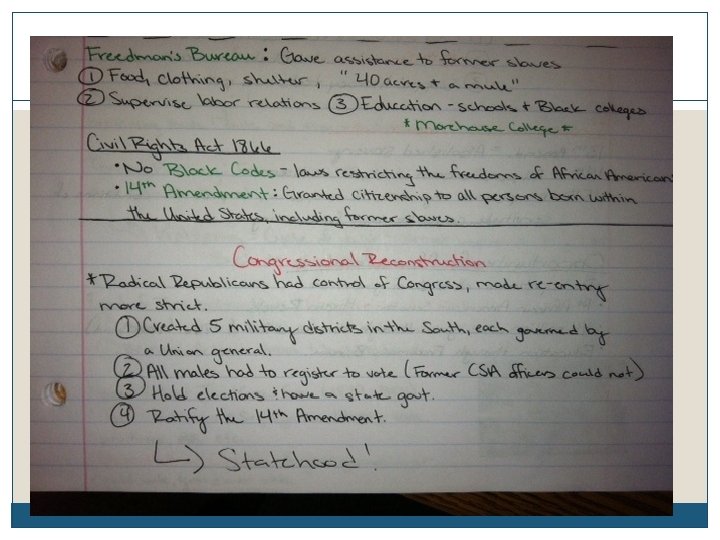 Freedman's Bureau: Gave assistance to former slaves
① Food, clothing, shelter, "40 acres + a mule"
② Supervise labor relations ③ Education - schools + Black colleges
* Morehouse College *
Civil Rights Act 1866
• No Black Codes - laws restricting the freedoms of African Americans
• 14th Amendment: Granted citizenship to all persons born within
the United States, including former slaves.
Congressional Reconstruction
* Radical Republicans had control of Congress, made re-entry
more strict.
① Created 5 military districts in the South, each governed by
a Union general.
② All males had to register to vote (Former CSA officers could not)
③ Hold elections + have a state govt.
④ Ratify the 14th Amendment.
↳ Statehood!